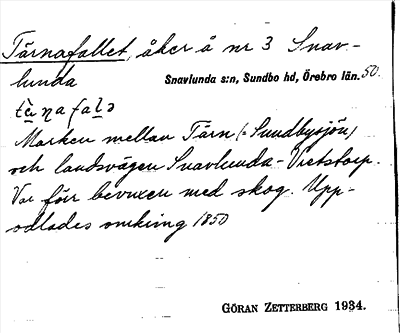 Tärnafallet, åker å nr 3 Snav-
lunda Snavlunda s:n, Sundbo hd, Örebro län. 50.
Marken mellan Tärn (= Sundbysjön)
och landsvägen Snavlunda - Vretstorp.
Var förr bevuxen med skog. Upp-
odlades omkring 1850
GÖRAN ZETTERBERG 1934.